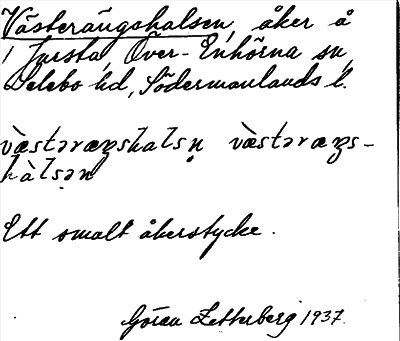 Västerängshalsen, åker å
/ Jursta, Över-Enhörna sn,
Selebo hd, Södermanlands l.
væ̀stəræŋshalsn̥ væ̀stəræŋs-
hàlsən
Ett smalt åkerstycke.
Göran Zetterberg 1937.